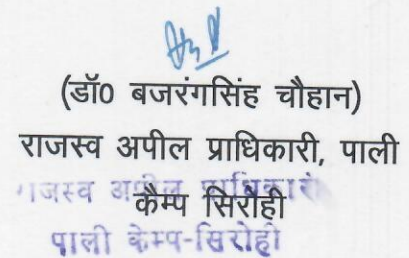 (डॉ0 बजरंगसिंह चौहान)
राजस्व अपील प्राधिकारी, पाली
कैम्प सिरोही
राजस्व अपील प्राधिकारी
पाली केम्प-सिरोही